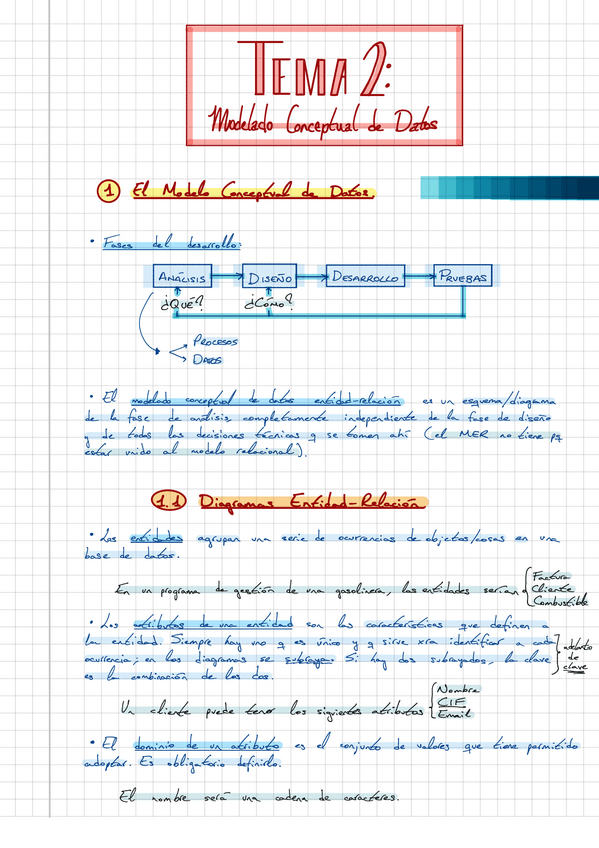 TEMA 2:
Modelado Conceptual de Datos
1 El Modelo Conceptual de Datos.
• Fases del desarrollo:
ANÁLISIS DISEÑO DESARROLLO PRUEBAS
¿QUÉ? ¿CÓMO?
PROCESOS
DATOS
• El modelado conceptual de datos entidad-relación es un esquema/diagrama
de la fase de análisis, completamente independiente de la fase de diseño
y de todas las decisiones técnicas q se tomen ahí (el MER no tiene pq
estar unido al modelo relacional).
1.1 Diagramas Entidad-Relación
• Las entidades agrupan una serie de ocurrencias de objetos/cosas en una
base de datos.
En un programa de gestión de una gasolinera, las entidades serían
Factura
Cliente
Combustible
• Los atributos de una entidad son las características que definen a
la entidad. Siempre hay uno q es único y q sirve xra identificar a cada
ocurrencia; en los diagramas se subraya. Si hay dos subrayados, la clave
es la combinación de los dos.
adelanto
de
clave
Un cliente puede tener los siguientes atributos
Nombre
CIF
Email
• El dominio de un atributo es el conjunto de valores que tiene permitido
adoptar. Es obligatorio definirlo.
El nombre será una cadena de caracteres.